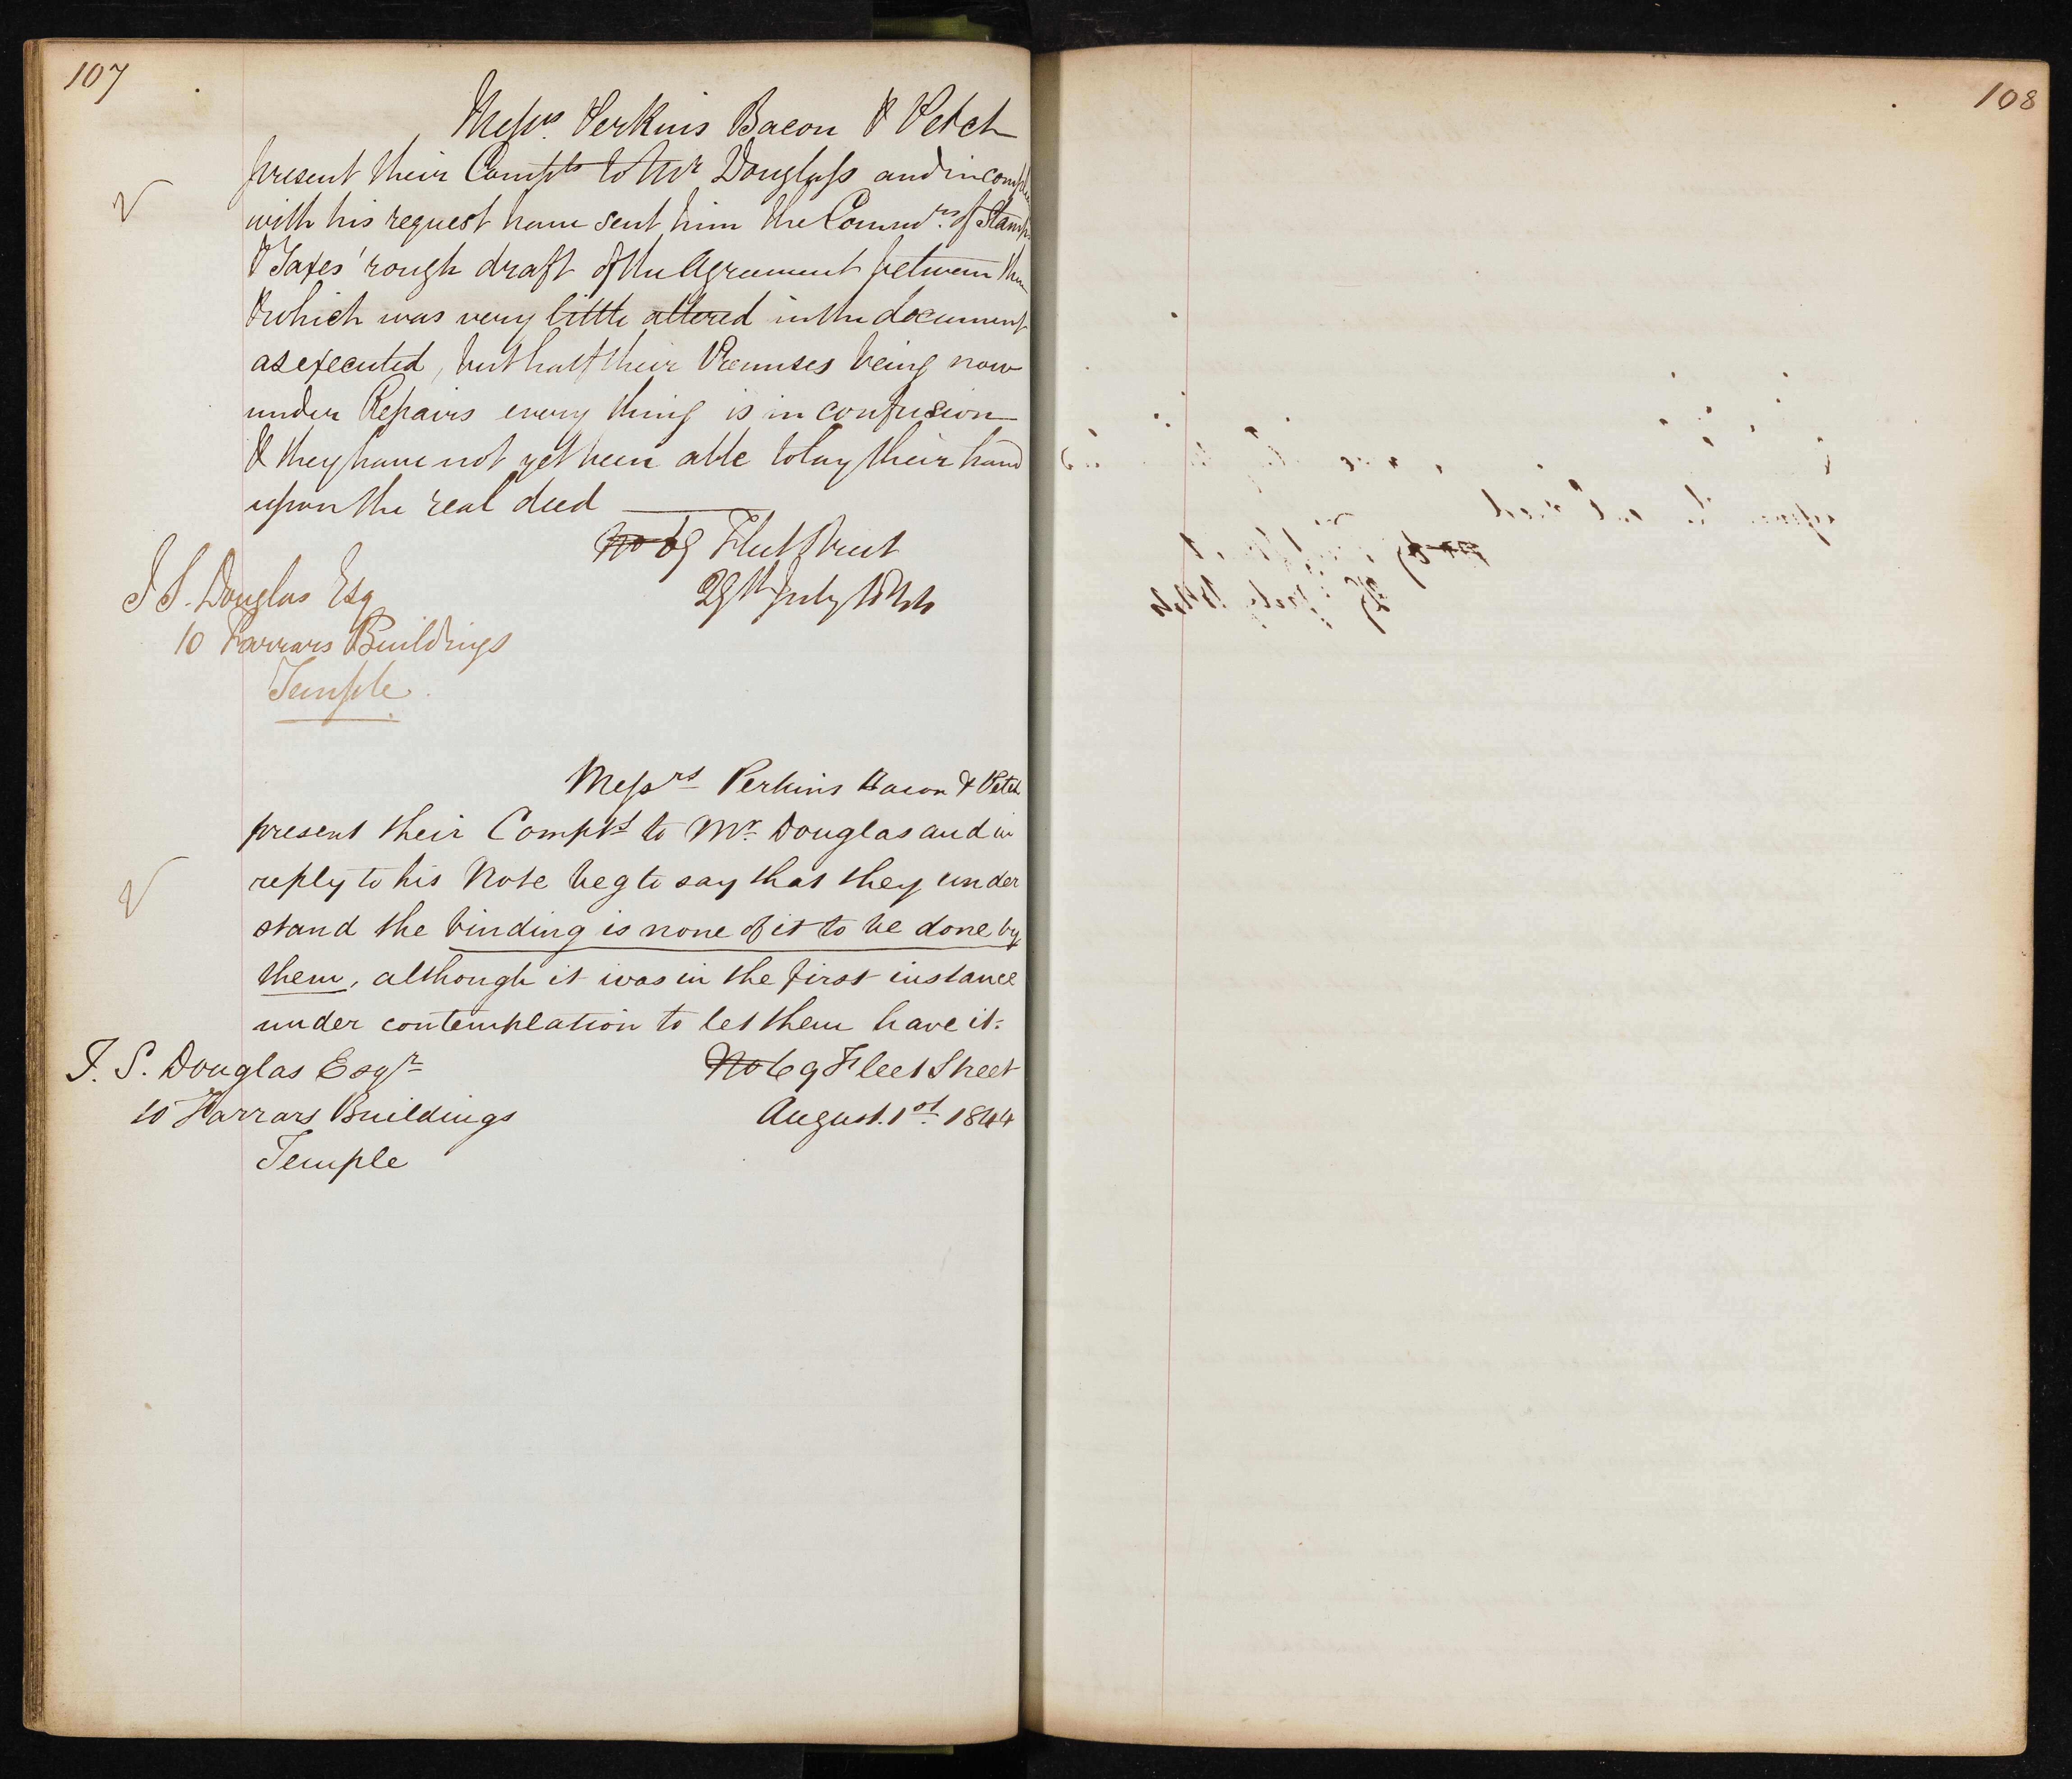 107
Messrs. Perkins Bacon & Petch
present their Compts to Mr Douglass and in
with his request have sent him the Commrs. of Stamps
& Taxes' rough draft of the Agreement between them
& which was very little altered in the document
as executed, but half their Premises being now
under Repairs every thing is in confusion
& they have not yet been able to lay their hand
upon the real deed
No 69 Fleet Street
29th July 1844
J S. Douglas Esq
10 Farrars Buildings
Temple.
Messrs Perkins Bacon & Petch
present their Compts to Mr. Douglas and in
reply to his Note beg to say that they under
stand the binding is none of it to be done by
them, although it was in the first instance
under contemplation to let them have it.
No 69 Fleet Street
August. 1st. 1844
J. S. Douglas Esqr
10 Farrars Buildings
Temple
108